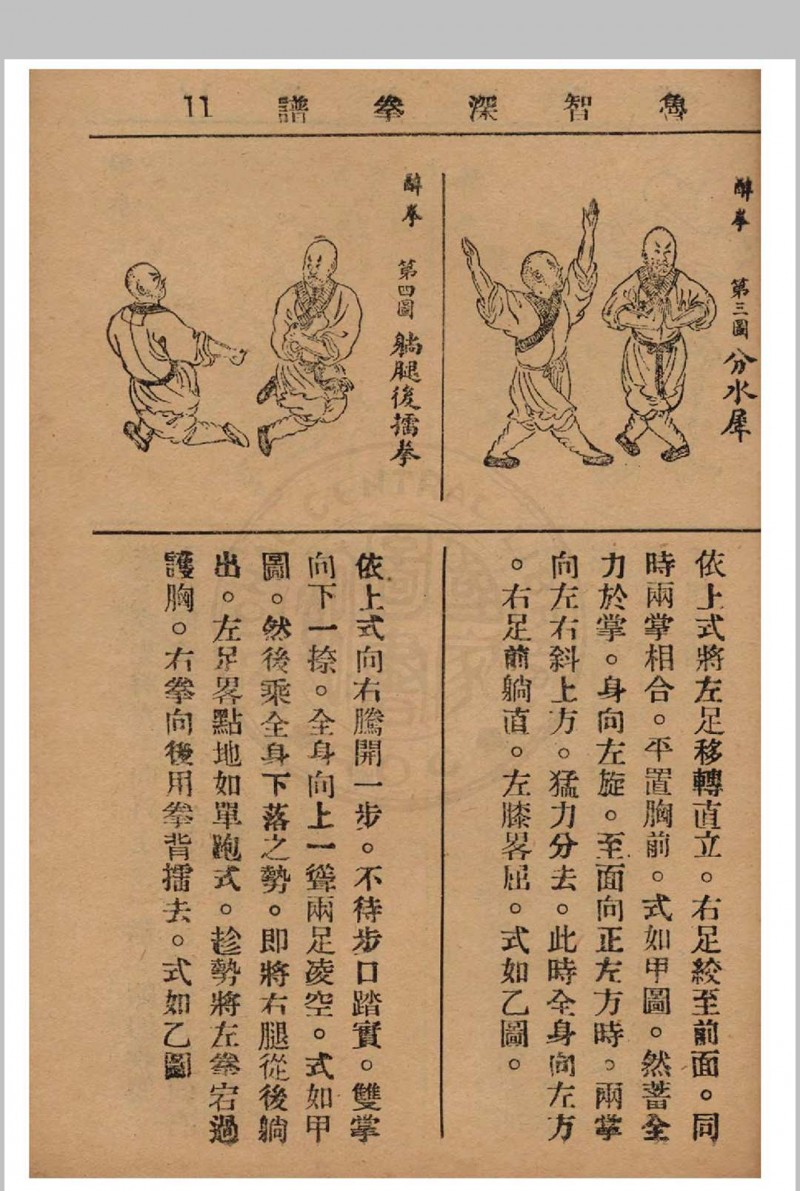 魯智深拳譜 11
醉拳 第三圖 分水犀
依上式將左足移轉直立。右足絞至前面。同
時兩掌相合。平置胸前。式如甲圖。然蓄全
力於掌。身向左旋。至面向正左方時。兩掌
向左右斜上方。猛力分去。此時全身向左方
。右足前躺直。左膝畧屈。式如乙圖。
醉拳 第四圖 躺腿後擂拳
依上式向右騰開一步。不待步口踏實。雙掌
向下一捺。全身向上一聳兩足凌空。式如甲
圖。然後乘全身下落之勢。即將右腿從後躺
出。左足畧點地如單跑式。趁勢將左拳宕過
護胸。右拳向後用拳背擂去。式如乙圖